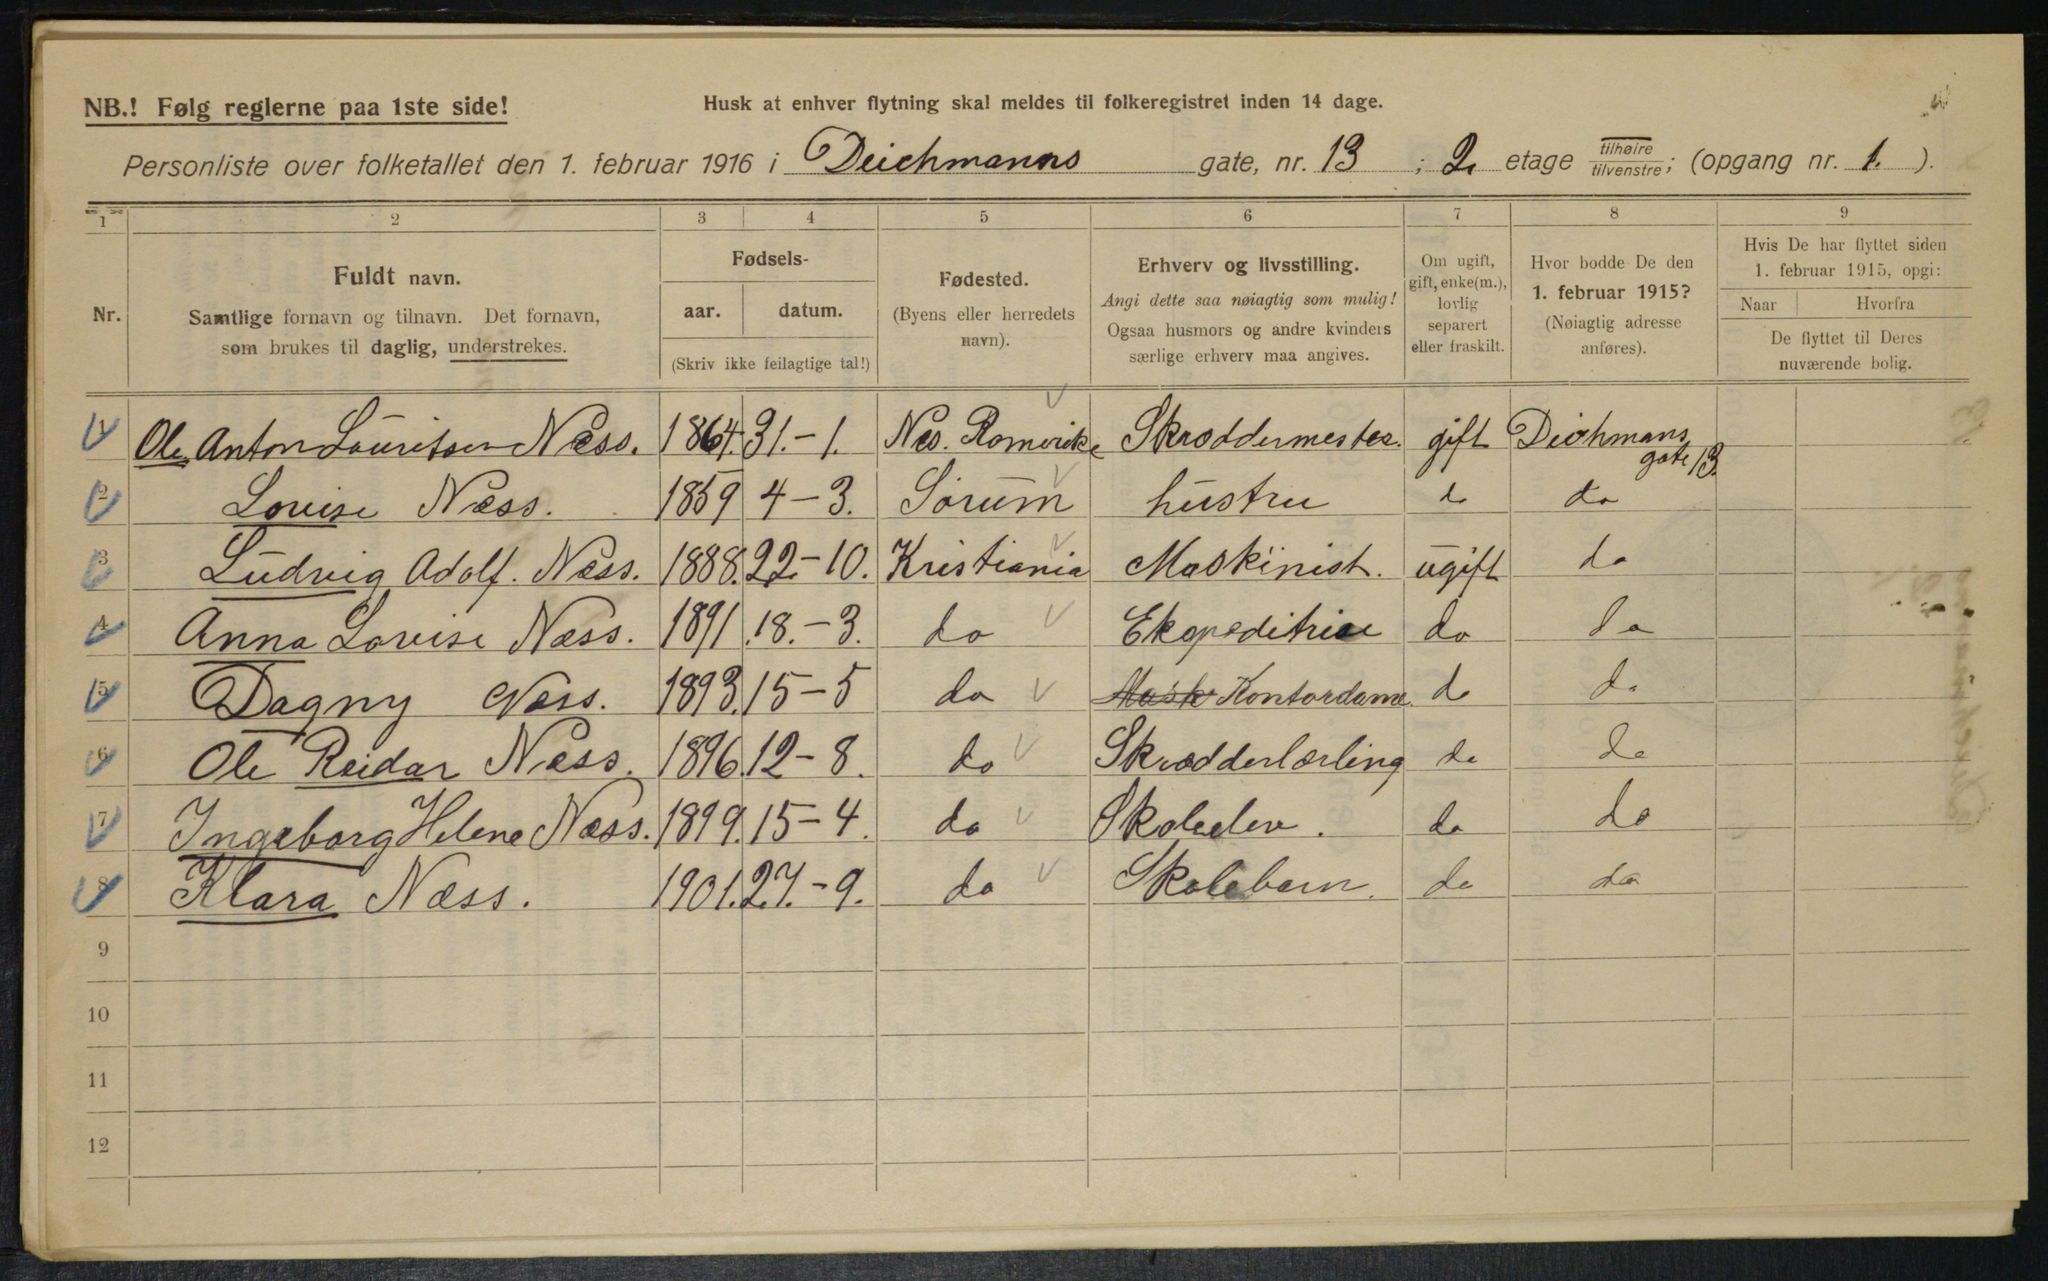 NB.! Følg reglerne paa 1ste side!
Husk at enhver flytning skal meldes til folkeregistret inden 14 dage.
Personliste over folketallet den 1. februar 1916 i Deichmanns gate, nr. 13 ; 2. etage tilhøire / tilvenstre ; (opgang nr. 1. ).
1 2 3 4 5 6 7 8 9
Nr.
Fuldt navn.
Samtlige fornavn og tilnavn. Det fornavn,
som brukes til daglig, understrekes.
Fødsels-
aar. datum.
(Skriv ikke feilagtige tal!)
Fødested.
(Byens eller herredets
navn).
Erhverv og livsstilling.
Angi dette saa nøiagtig som mulig!
Ogsaa husmors og andre kvinders
særlige erhverv maa angives.
Om ugift,
gift, enke(m.),
lovlig
separert
eller fraskilt.
Hvor bodde De den
1. februar 1915?
(Nøiagtig adresse
anføres).
Hvis De har flyttet siden
1. februar 1915, opgi:
Naar Hvorfra
De flyttet til Deres
nuværende bolig.
1 Ole Anton Lauritsen Næss. 1864. 31.-1. Nes. Romerike Skræddermester. gift Dichmans gate 13.
2 Lovise Næss. 1859 4-3. Sørum hustru do do
3 Ludvig Adolf. Næss. 1888. 22.-10. Kristiania Maskinist. ugift do
4 Anna Lovise Næss. 1891 18.-3. do Ekspeditrise do do
5 Dagny Næss. 1893. 15-5 do Mask Kontordame. do do
6 Ole Reidar Næss. 1896. 12-8. do Skrædderlærling do do
7 Ingeborg Helene Næss. 1899. 15-4. do Skoleelev. do do
8 Klara Næss. 1901. 27.-9. do Skolebarn. do do
9
10
11
12